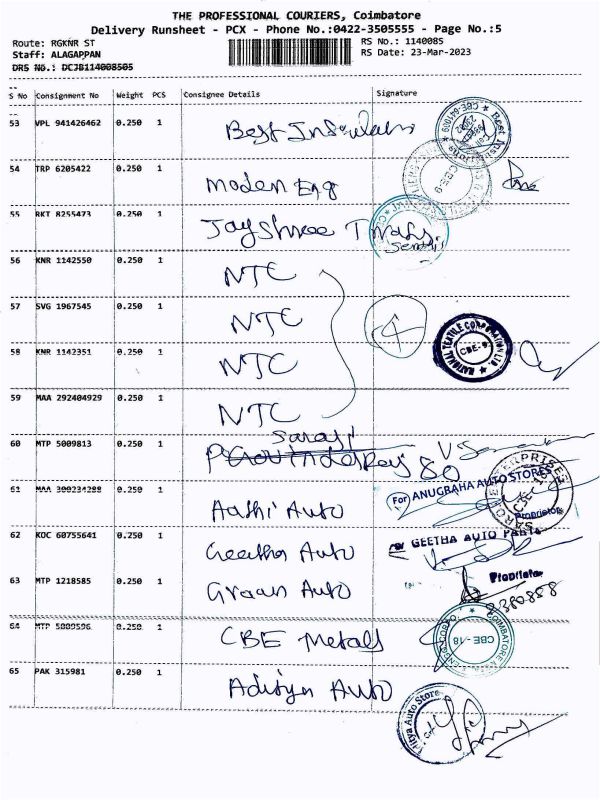 THE PROFESSIONAL COURIERS, Coimbatore
Delivery Runsheet - PCX - Phone No.:0422-3505555 - Page No.:5
Route: RGKNR ST
RS No.: 1140085
Staff: ALAGAPPAN
RS Date: 23-Mar-2023
DRS No.: DCJB114008505
S No Consignment No Weight PCS Consignee Details Signature
53 VPL 941426462 0.250 1 Best
54 TRP 6205422 0.250 1 Moden Eng
55 RKT 8255473 0.250 1 Jayshree
56 KNR 1142550 0.250 1 NTC
57 SVG 1967545 0.250 1 NTC
4
NATIONAL TEXTILE CORPORATION LTD.
CBE-9
58 KNR 1142351 0.250 1 NTC
59 MAA 292404929 0.250 1 NTC
60 MTP 5009813 0.250 1 80
61 MAA 300234288 0.250 1 Aathi Auto
For ANUGRAHA AUTO STORES
Proprietor
62 KOC 60755641 0.250 1 Geetha Auto
GEETHA AUTO PARTS
63 MTP 1218585 0.250 1 Auto
Proprietor
64 MTP 5009596 0.250 1 CBE Metals
CBE-18
65 PAK 315981 0.250 1 Aditya Auto
Aditya Auto Store